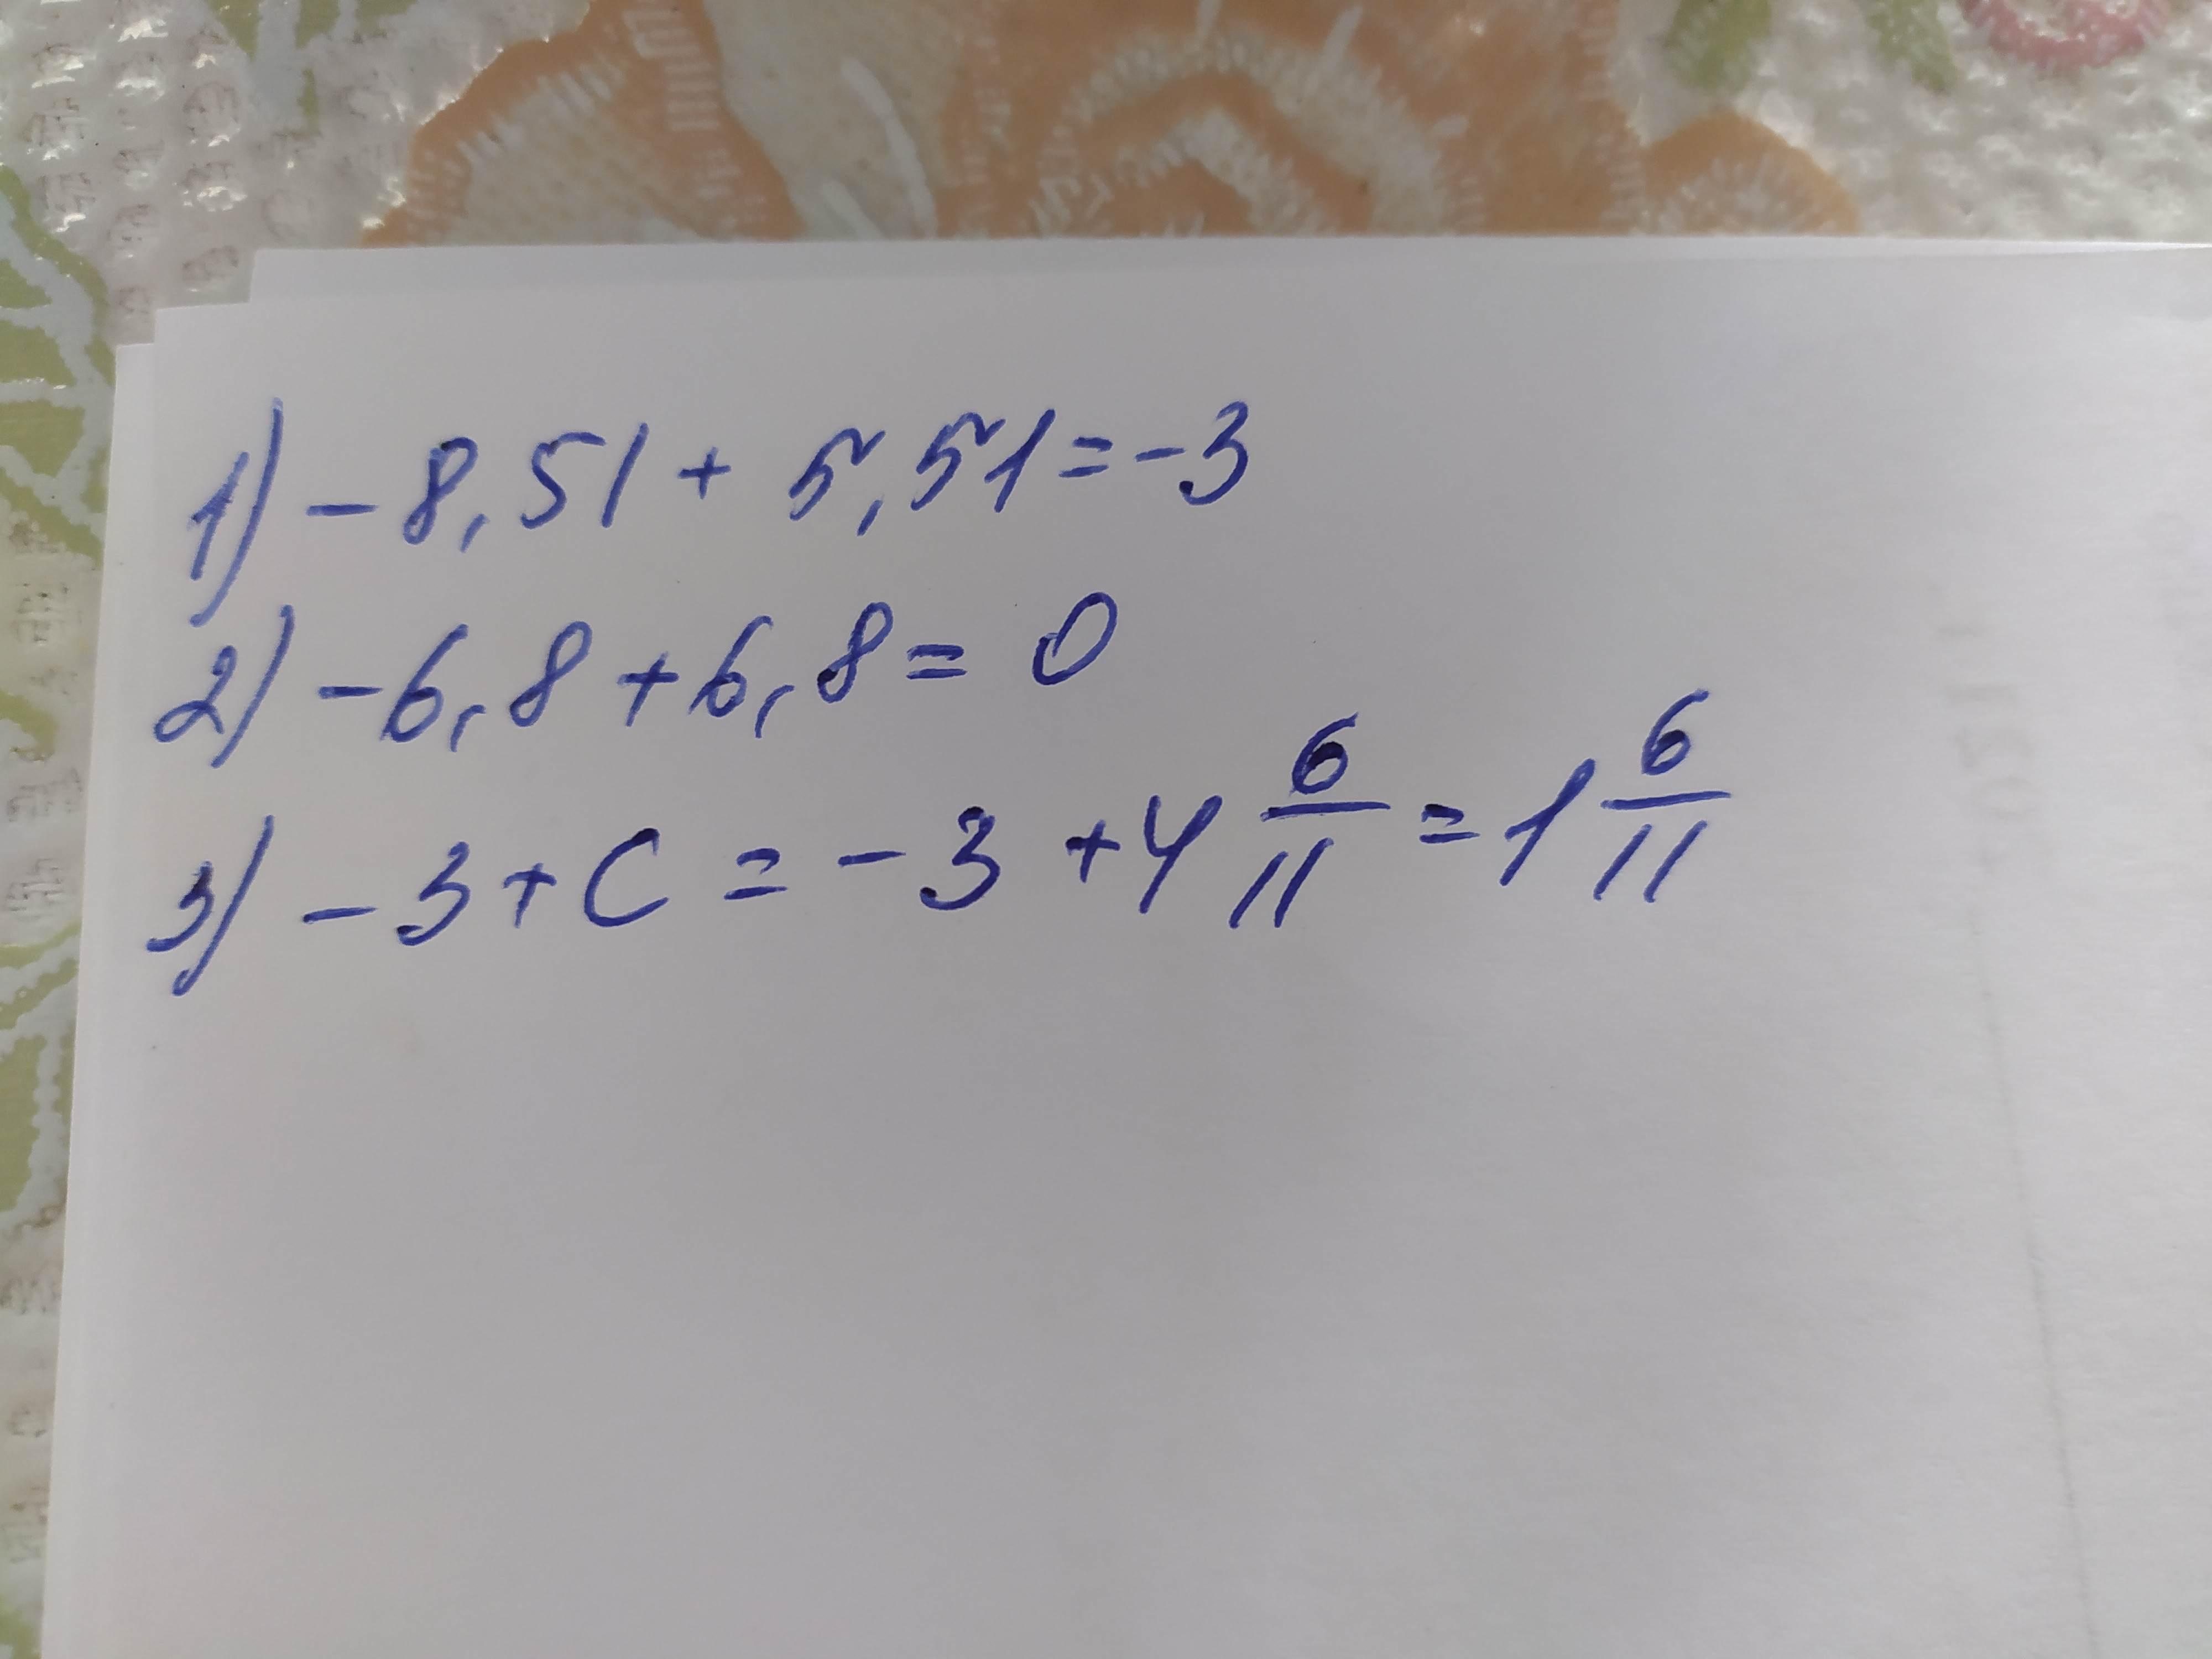 1) - 8,51 + 5,51 = -3
2) - 6,8 + 6,8 = 0
3) - 3 + C = - 3 + 4 6/11 = 1 6/11